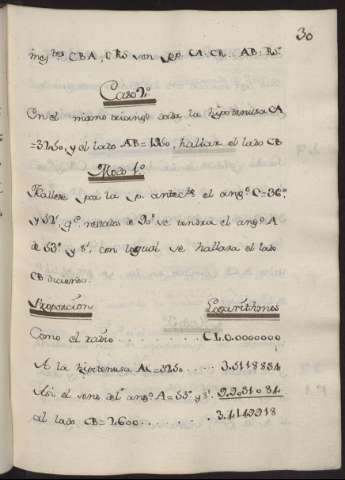 30
CBA, CRS van CA. CR. AB. RS.
Caso 2º
En el mismo triangº dada la hipotenusa CA
=3250, y el lado AB=1950, hallar el lado CB
Modo 1º
Hallese por la p. antecte el angº C=36º
y 52', qº restados de 90º se tendra el angº A
de 53º y 8', con lo qual se hallara el lado
CB diciendo.
Proporcion Logarithmos
Como el radio . . . . . . . . . . CL.0.0000000
A la hipotenusa AC=3250 . . . . . . 3.5118834
Asi el seno del angº A=53º y 8'. 9.9031084
al lado CB=2600 . . . . . 3.4149918